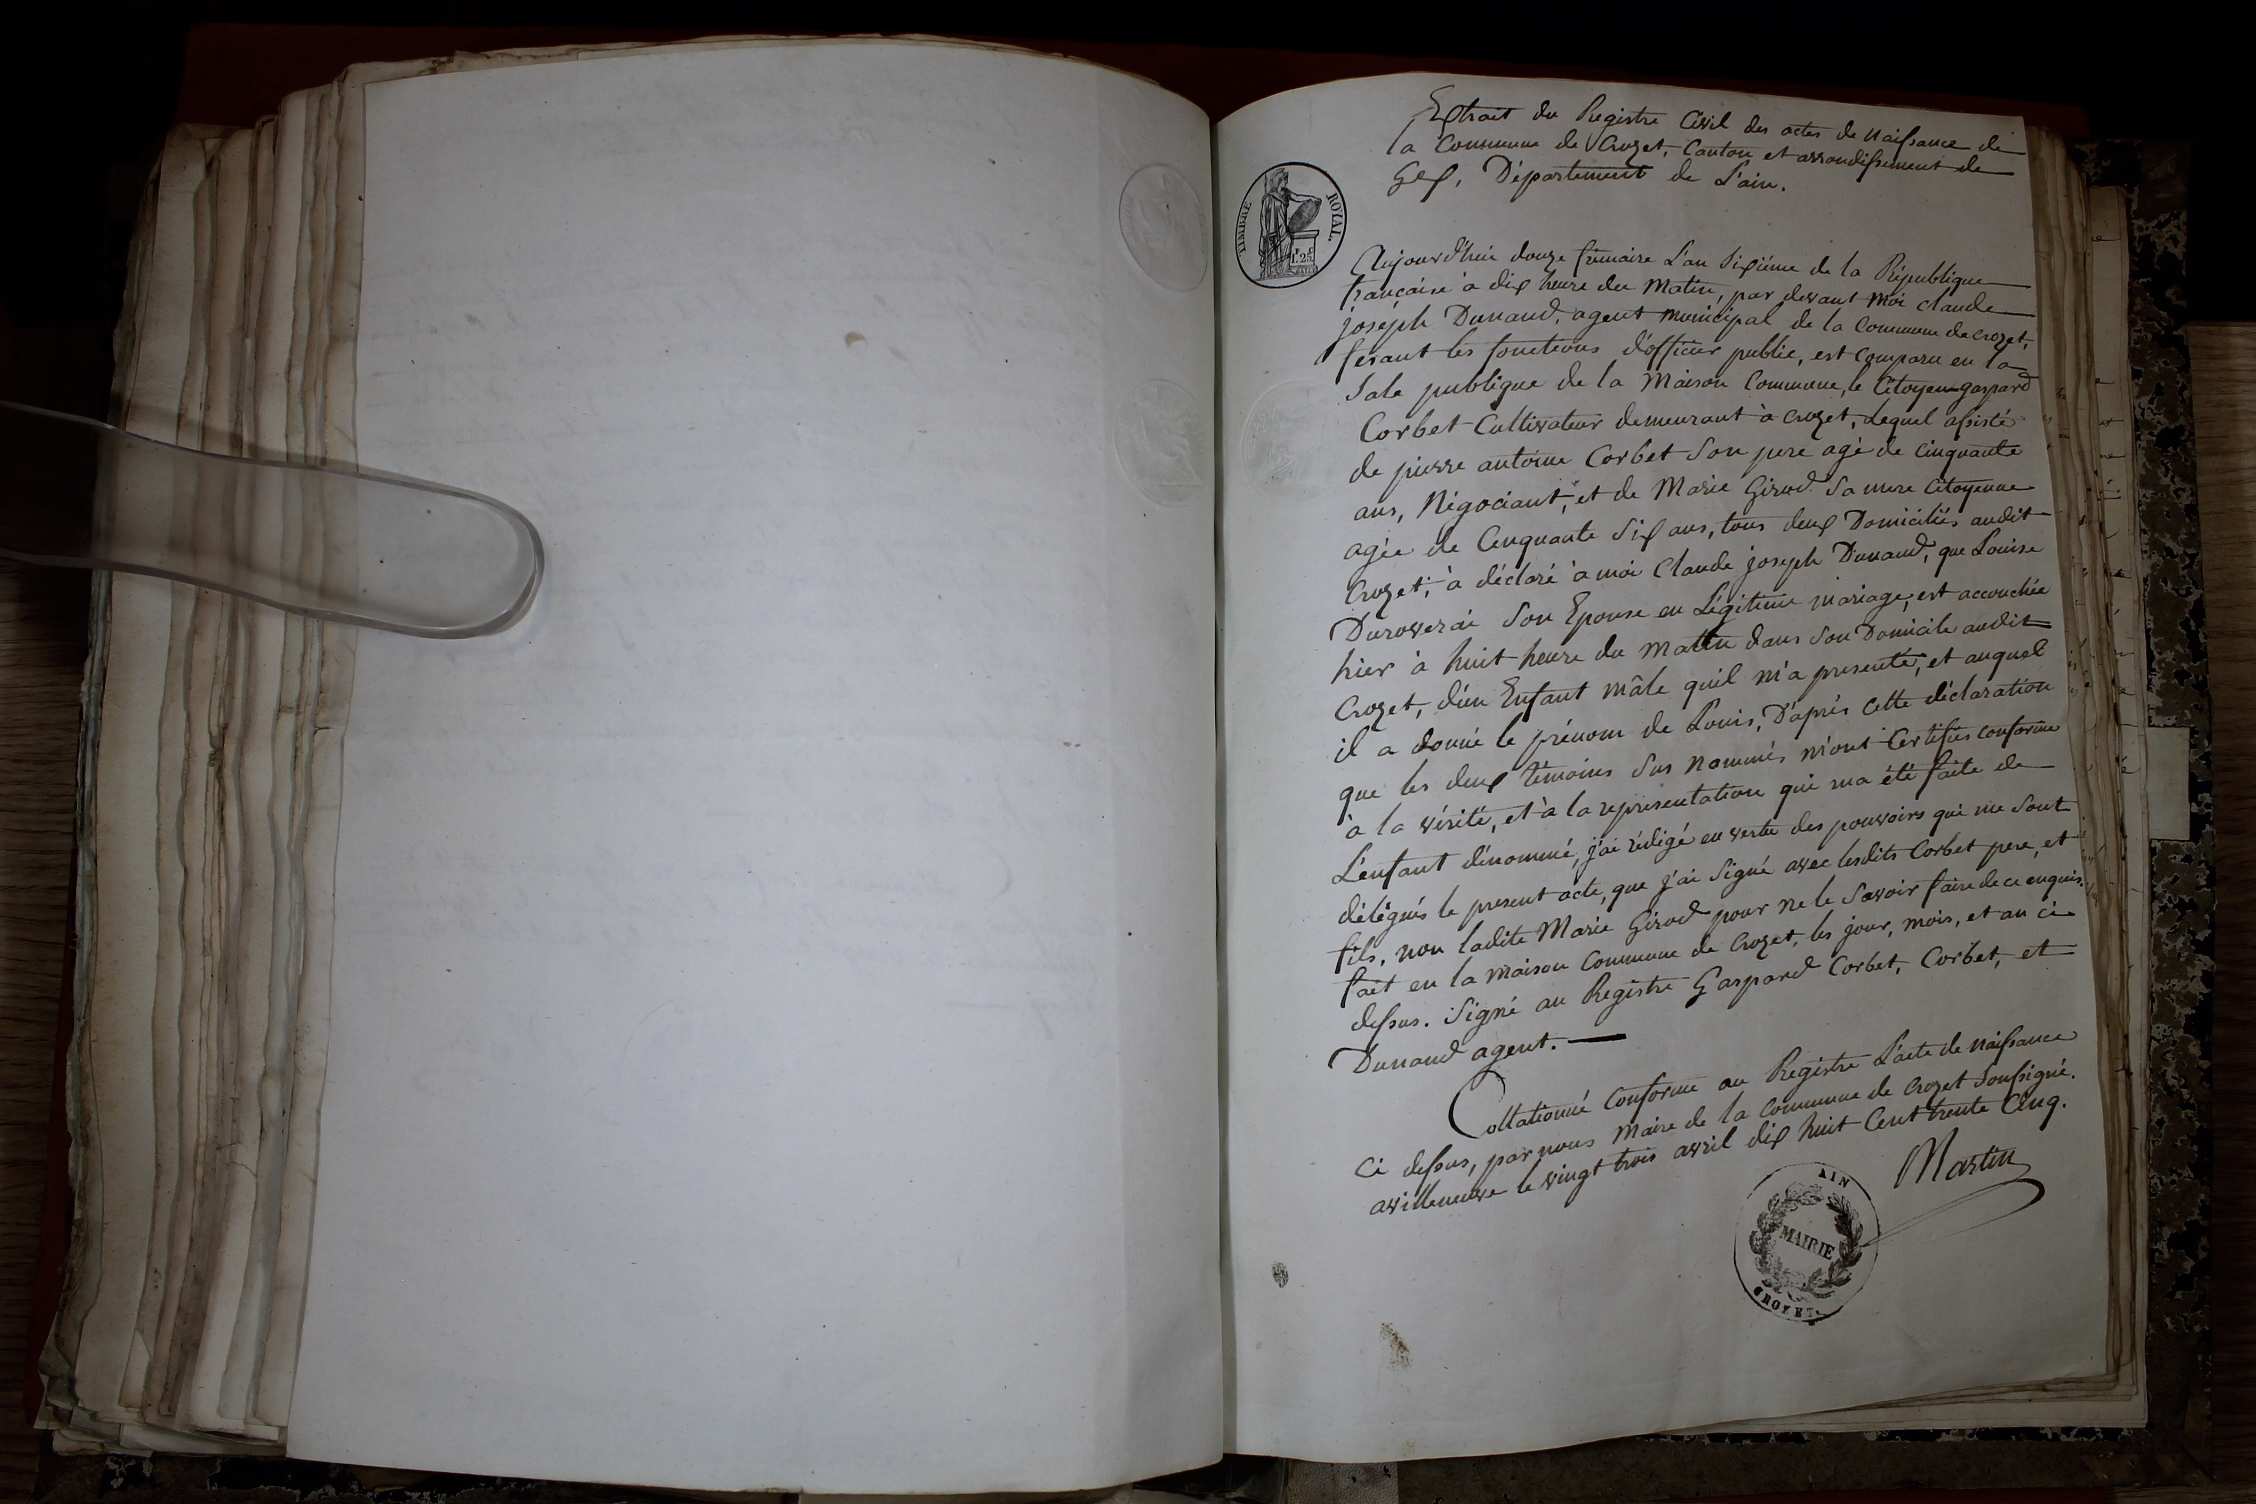 Extrait du Registre Civil des actes de Naissance de
la Commune de Crozet, Canton et arrondissement de
Gex, Département de L'ain.
TIMBRE ROYAL
1F 25C
Aujourd'hui douze frimaire L'an Sixième de la République
française à dix heure du Matin, par devant moi claude
joseph Dunand, agent municipal de la Commune de crozet,
fesant les fonctions d'officier public, est comparu en la
Sale publique de la Maison Commune, le Citoyen gaspard
Corbet Cultivateur demeurant à crozet, Lequel assisté
de pierre antoine Corbet Son pere agé de Cinquante
ans, Négociant, et de Marie Girod Sa mere Citoyenne
agée de Cinquante Six ans, tous deux Domiciliés audit
Crozet; à déclaré à moi Claude joseph Dunand, que Louise
Duroverai Son Epouse en Légitime mariage, est accouchée
hier à huit heure du Matin dans Son Domicile audit
Crozet, d'un Enfant mâle quil m'a presenté, et auquel
il a donné le prénom de Louis, D'après cette déclaration
que les deux témoins Sus nommés m'ont Certifiés conforme
à la vérité, et à la representation qui ma été faite de
L'enfant dénommé, j'ai rédigé en vertu des pouvoirs qui me Sont
délégués le present acte, que j'ai Signé avec lesdits Corbet pere, et
fils, non ladite Marie Girod pour ne le Savoir faire de ce enquis.
fait en la maison Commune de Crozet, les jour, mois, et an ci
dessus. Signé au Registre Gaspard Corbet, Corbet, et
Dunand agent. —
Collationné Conforme au Registre L'acte de Naissance
Ci dessus, par nous Maire de la Commune de Crozet Soussigné.
avilleneuve le vingt trois avril dix huit Cent trente Cinq.
Martin
AIN
MAIRIE
CROZET